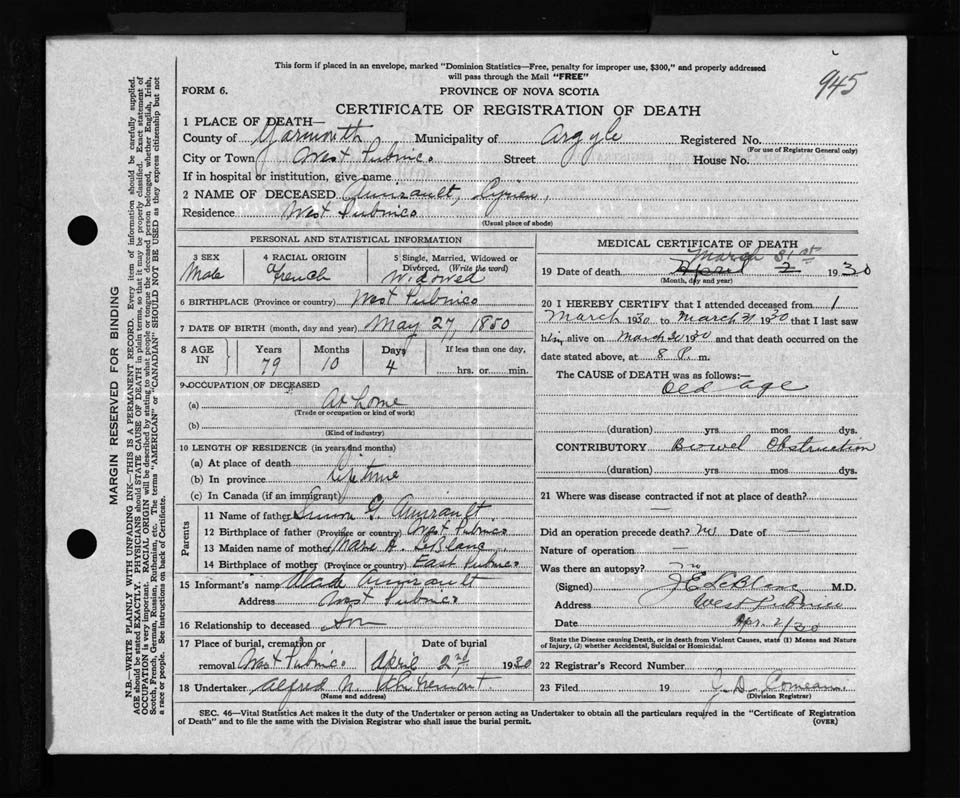 945
This form if placed in an envelope, marked "Dominion Statistics—Free, penalty for improper use, $300," and properly addressed
will pass through the Mail "FREE"
FORM 6.
PROVINCE OF NOVA SCOTIA
CERTIFICATE OF REGISTRATION OF DEATH
1 PLACE OF DEATH—
County of Yarmouth Municipality of Argyle Registered No.
(For use of Registrar General only)
City or Town West Pubnico Street House No.
If in hospital or institution, give name
2 NAME OF DECEASED Amirault, Cyrien,
Residence West Pubnico
(Usual place of abode)
PERSONAL AND STATISTICAL INFORMATION
3 SEX 4 RACIAL ORIGIN 5 Single, Married, Widowed or
Divorced. (Write the word)
Male French Widowed
6 BIRTHPLACE (Province or country) West Pubnico
7 DATE OF BIRTH (month, day and year) May 27, 1850
8 AGE IN Years Months Days If less than one day,
79 10 4 hrs. or min.
9 OCCUPATION OF DECEASED
(a) At home
(Trade or occupation or kind of work)
(b)
(Kind of industry)
10 LENGTH OF RESIDENCE (in years and months)
(a) At place of death
(b) In province Life time
(c) In Canada (if an immigrant)
Parents
11 Name of father Simon G. Amirault
12 Birthplace of father (Province or country) West Pubnico
13 Maiden name of mother Marie A. LeBlanc
14 Birthplace of mother (Province or country) East Pubnico
15 Informant's name Amirault
Address West Pubnico
16 Relationship to deceased Son
17 Place of burial, cremation or Date of burial
removal West Pubnico April 2nd, 1930
18 Undertaker Alfred N.
(Name and address)
MEDICAL CERTIFICATE OF DEATH
March 31st
19 Date of death April 2 1930
(Month, day and year)
20 I HEREBY CERTIFY that I attended deceased from 1
March 1930 to March 31 1930 that I last saw
him alive on March 30 and that death occurred on the
date stated above, at 8 P. m.
The CAUSE of DEATH was as follows:—
Old age
(duration) yrs mos dys.
CONTRIBUTORY Bowel Obstruction
(duration) yrs mos dys.
21 Where was disease contracted if not at place of death?
—
Did an operation precede death? no Date of —
Nature of operation —
Was there an autopsy? no
(Signed) J E LeBlanc M.D.
Address West Pubnico
Date Apr. 2/30
State the Disease causing Death, or in death from Violent Causes, state (1) Means and Nature
of Injury, (2) whether Accidental, Suicidal or Homicidal.
22 Registrar's Record Number
23 Filed 19 J. D. Comeau
(Division Registrar)
SEC. 46—Vital Statistics Act makes it the duty of the Undertaker or person acting as Undertaker to obtain all the particulars required in the "Certificate of Registration
of Death" and to file the same with the Division Registrar who shall issue the burial permit.
(OVER)
MARGIN RESERVED FOR BINDING
N.B.—WRITE PLAINLY WITH UNFADING INK—THIS IS A PERMANENT RECORD. Every item of information should be carefully supplied.
AGE should be stated EXACTLY. PHYSICIANS should STATE CAUSE OF DEATH in plain terms, so that it may be properly classified. Exact statement of
OCCUPATION is very important. RACIAL ORIGIN will be described by stating to what people or tongue the deceased person belonged, whether English, Irish,
Scotch, French, German, Russian, Ruthenian, etc. The terms "AMERICAN" or "CANADIAN" SHOULD NOT BE USED as they express citizenship but not
a race or people. See instructions on back of Certificate.